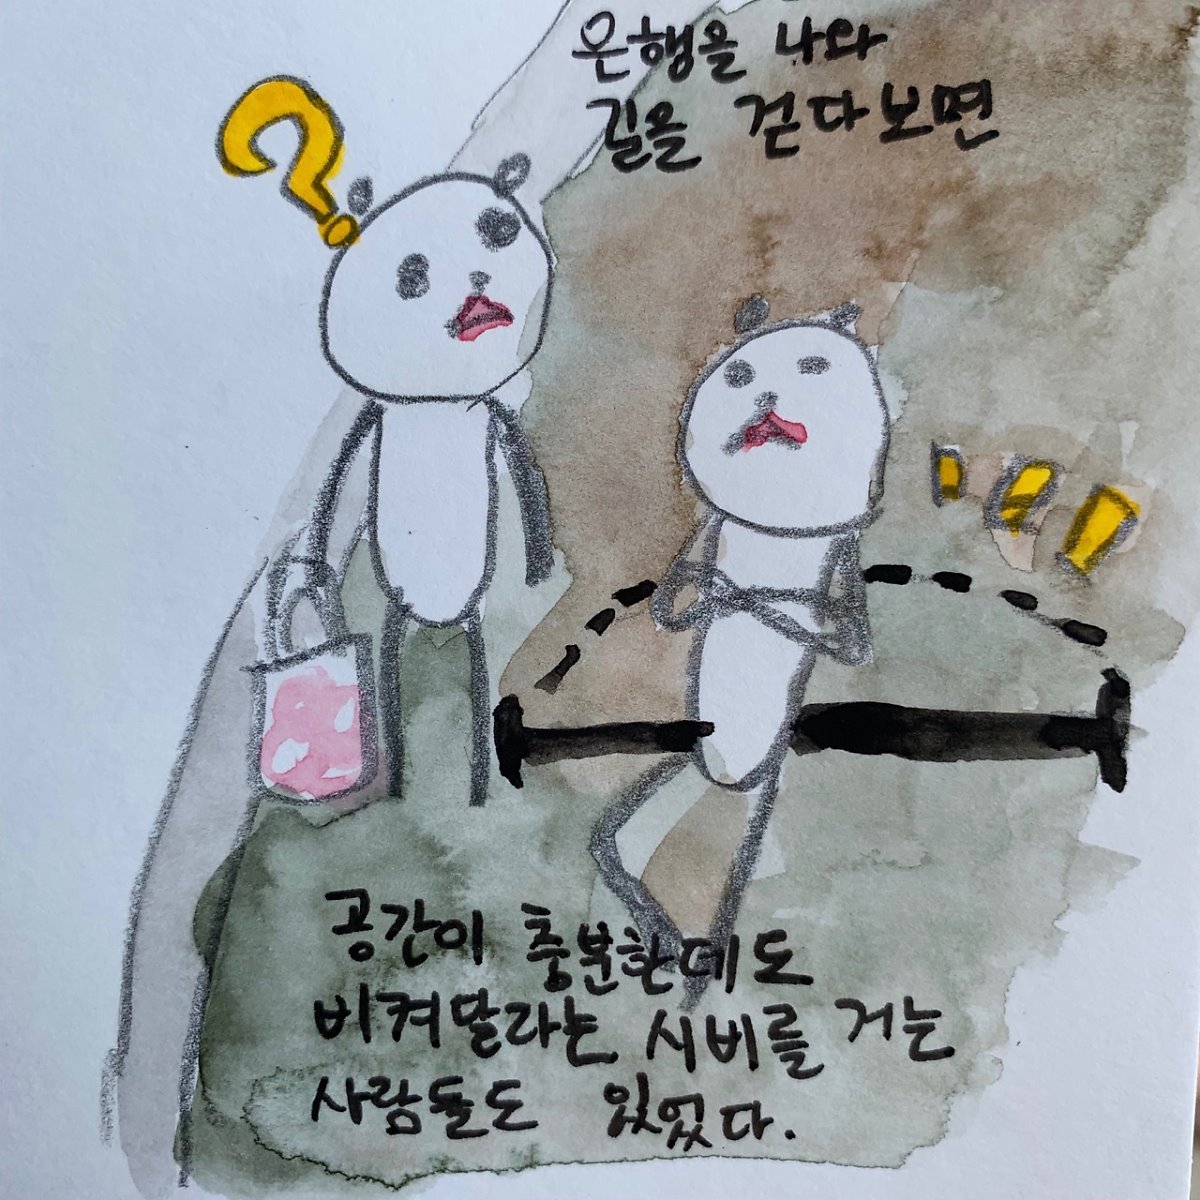 은행을 나와
길을 걷다보면
공간이 충분한데도
비켜달라는 시비를 거는
사람들도 있었다.